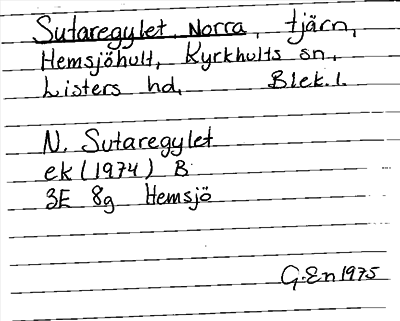 Sutaregylet, Norra, tjärn,
Hemsjöhult, Kyrkhults sn,
Listers hd, Blek. l.
N. Sutaregylet
ek (1974) B
3E 8g Hemsjö
G. En 1975